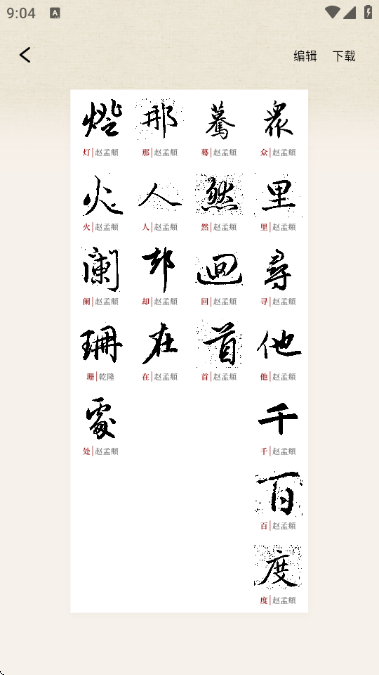 9:04 A
编辑 下载
眾
众|赵孟頫
里
里|赵孟頫
尋
寻|赵孟頫
他
他|赵孟頫
千
千|赵孟頫
百
百|赵孟頫
度
度|赵孟頫
驀
蓦|赵孟頫
然
然|赵孟頫
迴
回|赵孟頫
首
首|赵孟頫
那
那|赵孟頫
人
人|赵孟頫
却
却|赵孟頫
在
在|赵孟頫
燈
灯|赵孟頫
火
火|赵孟頫
闌
阑|赵孟頫
珊
珊|乾隆
處
处|赵孟頫